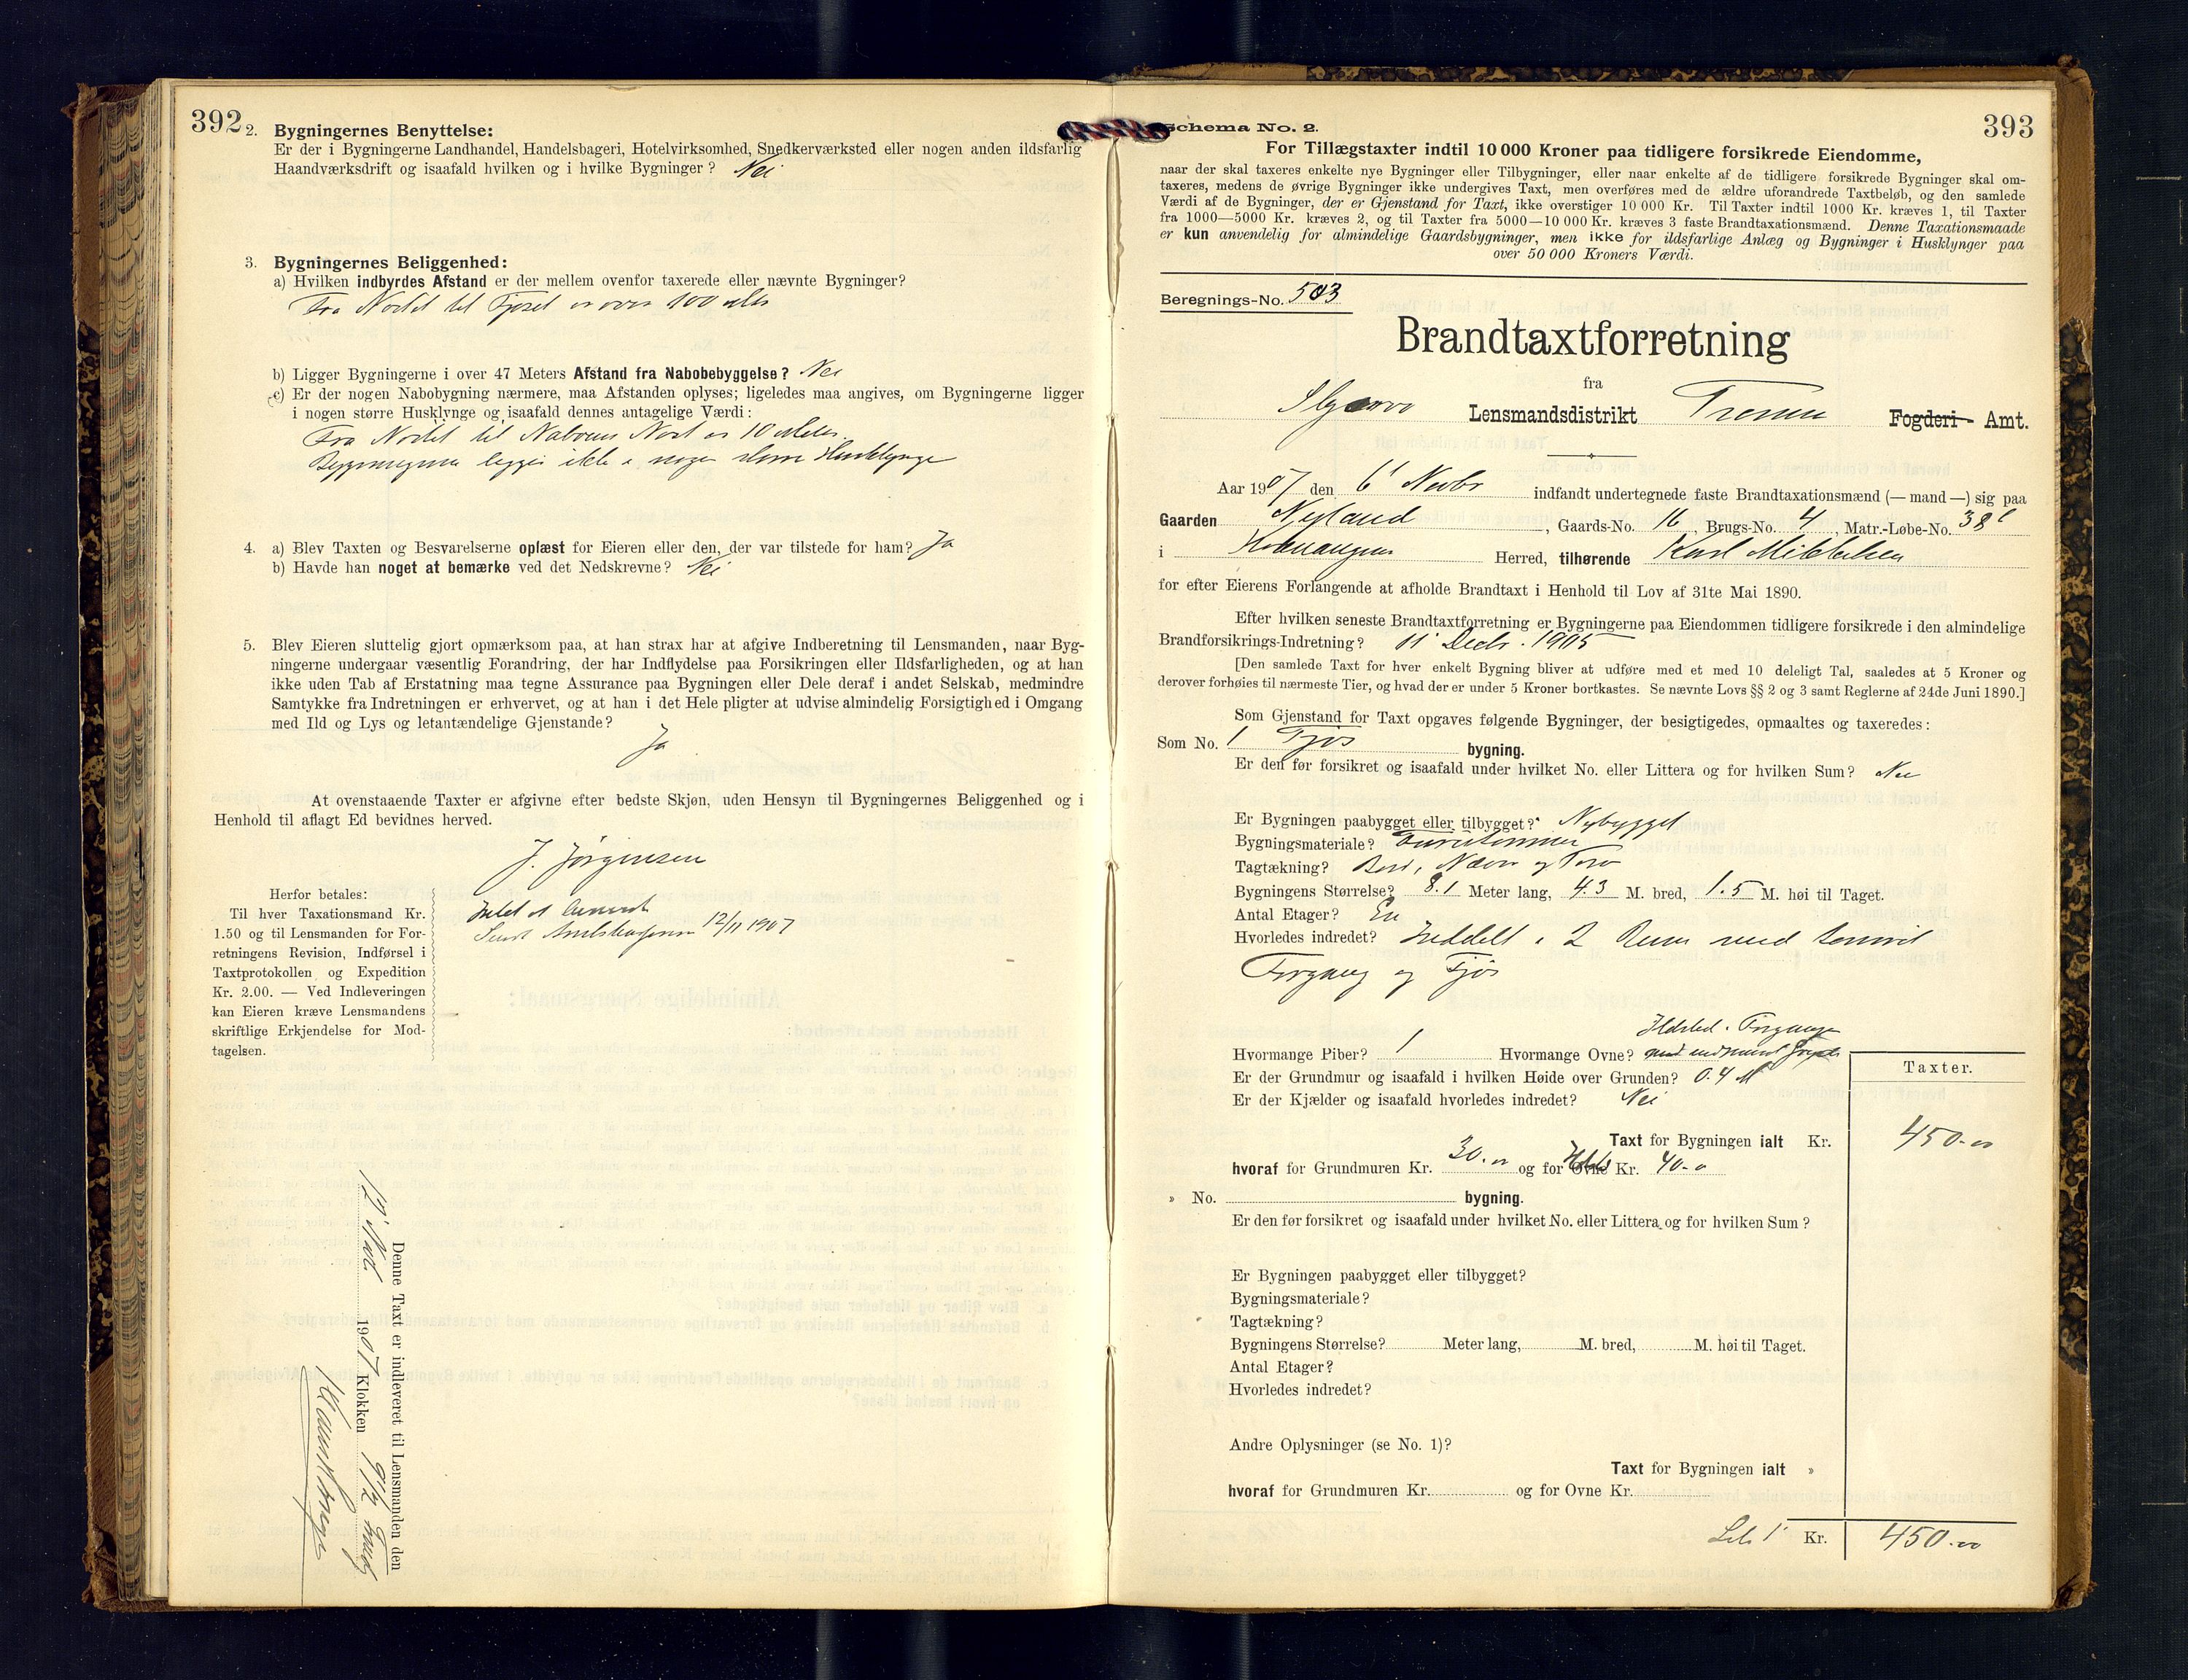 392
2. Bygningernes Benyttelse:
Er der i Bygningerne Landhandel, Handelsbageri, Hotelvirksomhed, Snedkerværksted eller nogen anden ildsfarlig
Haandværksdrift og isaafald hvilken og i hvilke Bygninger? Nei
3. Bygningernes Beliggenhed:
a) Hvilken indbyrdes Afstand er der mellem ovenfor taxerede eller nævnte Bygninger?
Fra Nostet til Fjøset er over 100 alen
b) Ligger Bygningerne i over 47 Meters Afstand fra Nabobebyggelse? Nei
c) Er der nogen Nabobygning nærmere, maa Afstanden oplyses; ligeledes maa angives, om Bygningerne ligger
i nogen større Husklynge og isaafald dennes antagelige Værdi:
Fra Nostet til Naboens Nost er 10 Meter.
Bygningerne ligger ikke i nogen større Husklynge
4. a) Blev Taxten og Besvarelserne oplæst for Eieren eller den, der var tilstede for ham? Ja
b) Havde han noget at bemærke ved det Nedskrevne? Nei
5. Blev Eieren sluttelig gjort opmærksom paa, at han strax har at afgive Indberetning til Lensmanden, naar Byg-
ningerne undergaar væsentlig Forandring, der har Indflydelse paa Forsikringen eller Ildsfarligheden, og at han
ikke uden Tab af Erstatning maa tegne Assurance paa Bygningen eller Dele deraf i andet Selskab, medmindre
Samtykke fra Indretningen er erhvervet, og at han i det Hele pligter at udvise almindelig Forsigtighed i Omgang
med Ild og Lys og letantændelige Gjenstande?
Ja
At ovenstaaende Taxter er afgivne efter bedste Skjøn, uden Hensyn til Bygningernes Beliggenhed og i
Henhold til aflagt Ed bevidnes herved.
J. Jørgensen
Herfor betales:
Til hver Taxationsmand Kr.
1.50 og til Lensmanden for For-
retningens Revision, Indførsel i
Taxtprotokollen og Expedition
Kr. 2.00. — Ved Indleveringen
kan Eieren kræve Lensmandens
skriftlige Erkjendelse for Mod-
tagelsen.
Sendt 12/11 1907
Denne Taxt er indleveret til Lensmanden den
12' Nov. 1907 Klokken 9 1/2 Fmdg
393
Schema No. 2.
For Tillægstaxter indtil 10 000 Kroner paa tidligere forsikrede Eiendomme,
naar der skal taxeres enkelte nye Bygninger eller Tilbygninger, eller naar enkelte af de tidligere forsikrede Bygninger skal om-
taxeres, medens de øvrige Bygninger ikke undergives Taxt, men overføres med de ældre uforandrede Taxtbeløb, og den samlede
Værdi af de Bygninger, der er Gjenstand for Taxt, ikke overstiger 10 000 Kr. Til Taxter indtil 1000 Kr. kræves 1, til Taxter
fra 1000—5000 Kr. kræves 2, og til Taxter fra 5000—10 000 Kr. kræves 3 faste Brandtaxationsmænd. Denne Taxationsmaade
er kun anvendelig for almindelige Gaardsbygninger, men ikke for ildsfarlige Anlæg og Bygninger i Husklynger paa
over 50 000 Kroners Værdi.
Beregnings-No. 503
Brandtaxtforretning
fra
Skjervø Lensmandsdistrikt Tromsø Fogderi Amt.
Aar 1907 den 6' Novbr indfandt undertegnede faste Brandtaxationsmænd (—mand—) sig paa
Gaarden Nyland, Gaards-No. 16, Brugs-No. 4, Matr.-Løbe-No. 38
i Kvænangen Herred, tilhørende Karl Mikkelsen
for efter Eierens Forlangende at afholde Brandtaxt i Henhold til Lov af 31te Mai 1890.
Efter hvilken seneste Brandtaxtforretning er Bygningerne paa Eiendommen tidligere forsikrede i den almindelige
Brandforsikrings-Indretning? 11' Decbr. 1905
[Den samlede Taxt for hver enkelt Bygning bliver at udføre med et med 10 deleligt Tal, saaledes at 5 Kroner og
derover forhøies til nærmeste Tier, og hvad der er under 5 Kroner bortkastes. Se nævnte Lovs §§ 2 og 3 samt Reglerne af 24de Juni 1890.]
Som Gjenstand for Taxt opgaves følgende Bygninger, der besigtigedes, opmaaltes og taxeredes:
Som No. 1 Fjøs bygning.
Er den før forsikret og isaafald under hvilket No. eller Littera og for hvilken Sum? Nei
Er Bygningen paabygget eller tilbygget? Nybygget
Bygningsmateriale? Furutømmer
Tagtækning? Bord, Næver og Torv
Bygningens Størrelse? 8.1 Meter lang, 4.3 M. bred, 1.5 M. høi til Taget.
Antal Etager? En
Hvorledes indredet? Inddelt i 2 Rum med
Forgang og Fjøs
Ildsted i Forgangen
Hvormange Piber? 1 Hvormange Ovne? med indmuret Gryde
Er der Grundmur og isaafald i hvilken Høide over Grunden? 0.4 M
Er der Kjælder og isaafald hvorledes indredet? Nei
Taxter.
Taxt for Bygningen ialt Kr. 450.00
hvoraf for Grundmuren Kr. 30.00 og for Ovne Ilds Kr. 40.0
» No. bygning.
Er den før forsikret og isaafald under hvilket No. eller Littera og for hvilken Sum?
Er Bygningen paabygget eller tilbygget?
Bygningsmateriale?
Tagtækning?
Bygningens Størrelse? Meter lang, M. bred, M. høi til Taget.
Antal Etager?
Hvorledes indredet?
Andre Oplysninger (se No. 1)?
Taxt for Bygningen ialt »
hvoraf for Grundmuren Kr. og for Ovne Kr.
Kr. 450.00